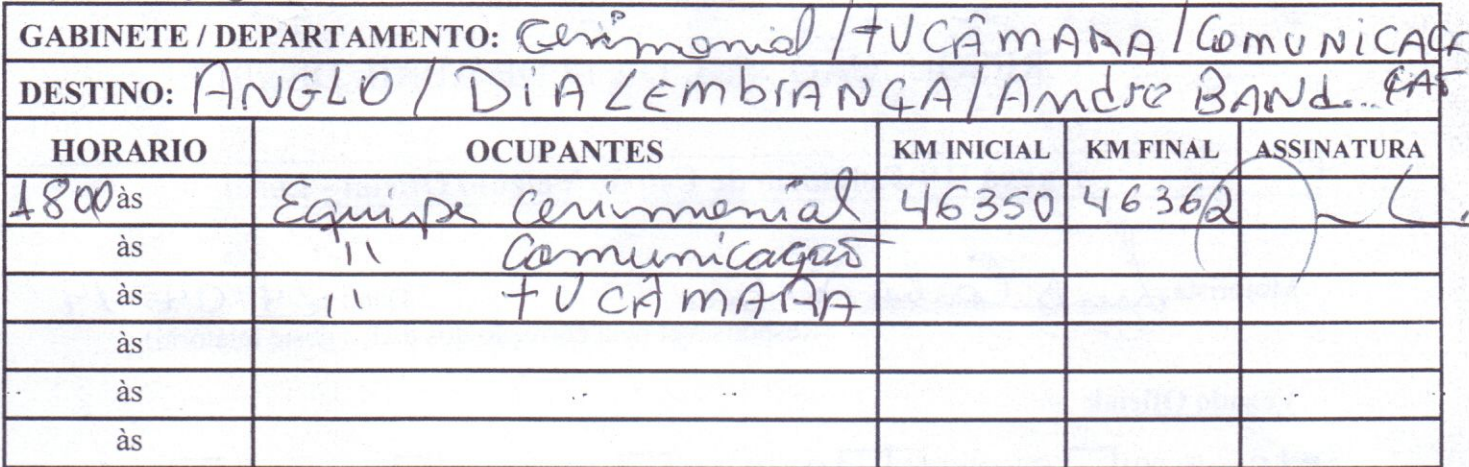 GABINETE / DEPARTAMENTO: Cerimonial / TV CÂMARA / COMUNICAÇÃO
DESTINO: ANGLO / DIA LEMBRANÇA / Andre BAND...
HORARIO OCUPANTES KM INICIAL KM FINAL ASSINATURA
1800 às Equipe Cerimonial 46350 46362
às " Comunicação
às " TV CÂMARA
às
às
às